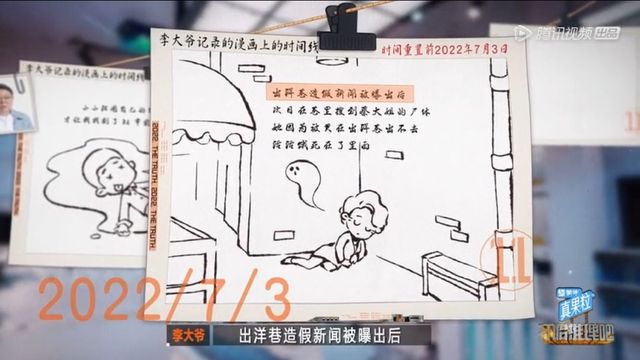 腾讯视频 出品
李大爷记录的漫画上的时间线
李大爷记录的漫画上的时间线
时间重置前2022年7月3日
出洋巷造假新闻被曝出后
次日在巷里搜到蔡大姐的尸体
她因为放失在出洋巷出不去
活活饿死在了里面
2022 THE TRUTH 2022 THE TRUTH
11
2022/7/3
真果粒
开始推理吧
李大爷
出洋巷造假新闻被曝出后